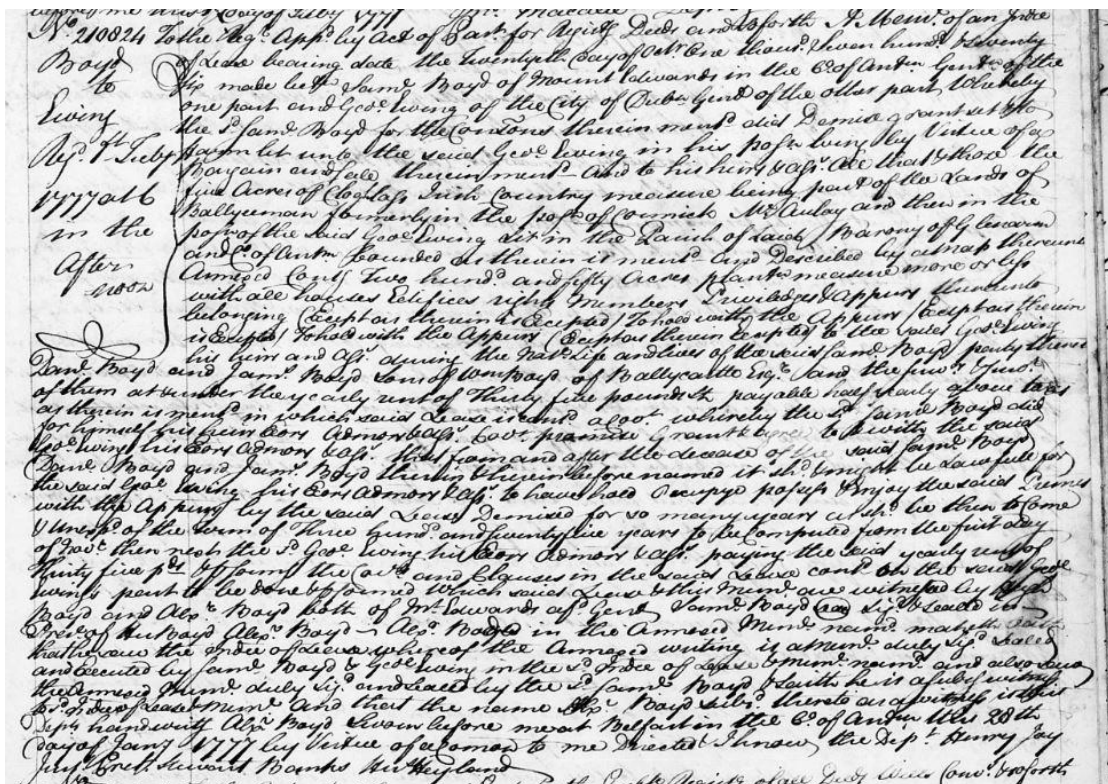 before me this Day of Feby 1777
No. 210824 To the Regr. Appd. by Act of Part. for Registg Deeds and soforth A Meml. of an Indre
Boyd
to
Ewing
Regd. 1st Feby
1777 at 6
in the
After
noon
of Lease bearing date the Twentyeth day of Octr. One thousd. Seven hundd. & Seventy
Six made betn. Saml. Boyd of Mount Edwards in the Co. of Antm Gentn. of the
one part and Geoe. Ewing of the City of Dubn Gent of the other part Whereby
the sd. Saml. Boyd for the Consons therein mentd. did Demise grant sett &to
Farm let unto the said Geoe. Ewing in his possn being by Virtue of a
Bargain and Sale therein mentd. and to his heirs & asss. All that & those the
five Acres of Cloghlass Irish Country measure being part of the Lands of
Ballyeeman formerly in the possn. of Cormick McAulay and then in the
possn. of the said Geoe. Ewing Sit. in the Parish of Laid, Barony of Glencarn
and Co. of Antm bounded as therein is mentd. and Described by a map thereunto
Annexed Cont. Two hundd. and fifty Acres plantn. measure more or less
with all houses Edifices rights Members Priviledges & Appurs thereunto
belonging (Except as therein is Excepted) To hold with the Appurs (Except as therein
is Excepted) To hold with the Appurs (Except as therein Excepted) to the said Geoe. Ewing
his heirs and asss. during the Natl. Life and lives of the said Saml. Boyd party thereto
Danl. Boyd and Jams. Boyd sons of Wm Boyd of Ballycastle Esqr. and the survr. & survs.
of them at & under the yearly rent of Thirty five pounds str. payable half yearly above taxes
as therein is mentd. in which said Lease is contd. a Covt. whereby the sd. Saml. Boyd did
for himself his heirs Exors Admors & asss. Covt. promise Grant & agree to & with the said
Geoe. Ewing his Exors Admors & asss. that from and after the decease of the said Saml. Boyd
Danl. Boyd and Jams. Boyd therein & herein before named it shd. & might be Lawfull for
the said Geoe. Ewing his Exors Admors & asss. to have hold Occupy possess & Enjoy the said Premes
with the Appurs by the said Lease Demised for so many years as shd. be then to Come
& Unexpd. of the Term of Three hundd. and seventy five years to be Computed from the first day
of Novr. then next the sd. Geoe. Ewing his Exors Admors & asss. paying the said yearly rent of
Thirty five pds. & pforming the Covts. and Clauses in the said Lease contd. on the said Geoe.
Ewings part to be done & pformed Which said Lease & this Meml. are witnessed by Hugh
Boyd and Alexr. Boyd both of Mt. Edwards afd. Gent Saml. Boyd Signd. & Sealed in
Presce. of Hu: Boyd Alexr. Boyd Alexr. Boyd in the Annexed Meml. named maketh Oath
that he saw the Indre of Lease whereof the Annexed writing is a Meml. duly Sigd. Sealed
and Executed by Saml. Boyd & Geoe. Ewing in the sd. Indre of Lease & Meml. named and also saw
the Annexed Meml. duly Sigd. and Sealed by the sd. Saml. Boyd & saith he is a subsg. witness
to sd. Indre of Lease & Meml. and that the name Alexr. Boyd subsd. thereto as a witness is this
Depts. handwritg Alexr. Boyd Sworn before me at Belfast in the Co. of Antm this 28th
day of Jany 1777 by Virtue of a Comon to me Directed & I know the Dept. Henry Joy
Junr. Stewart Banks